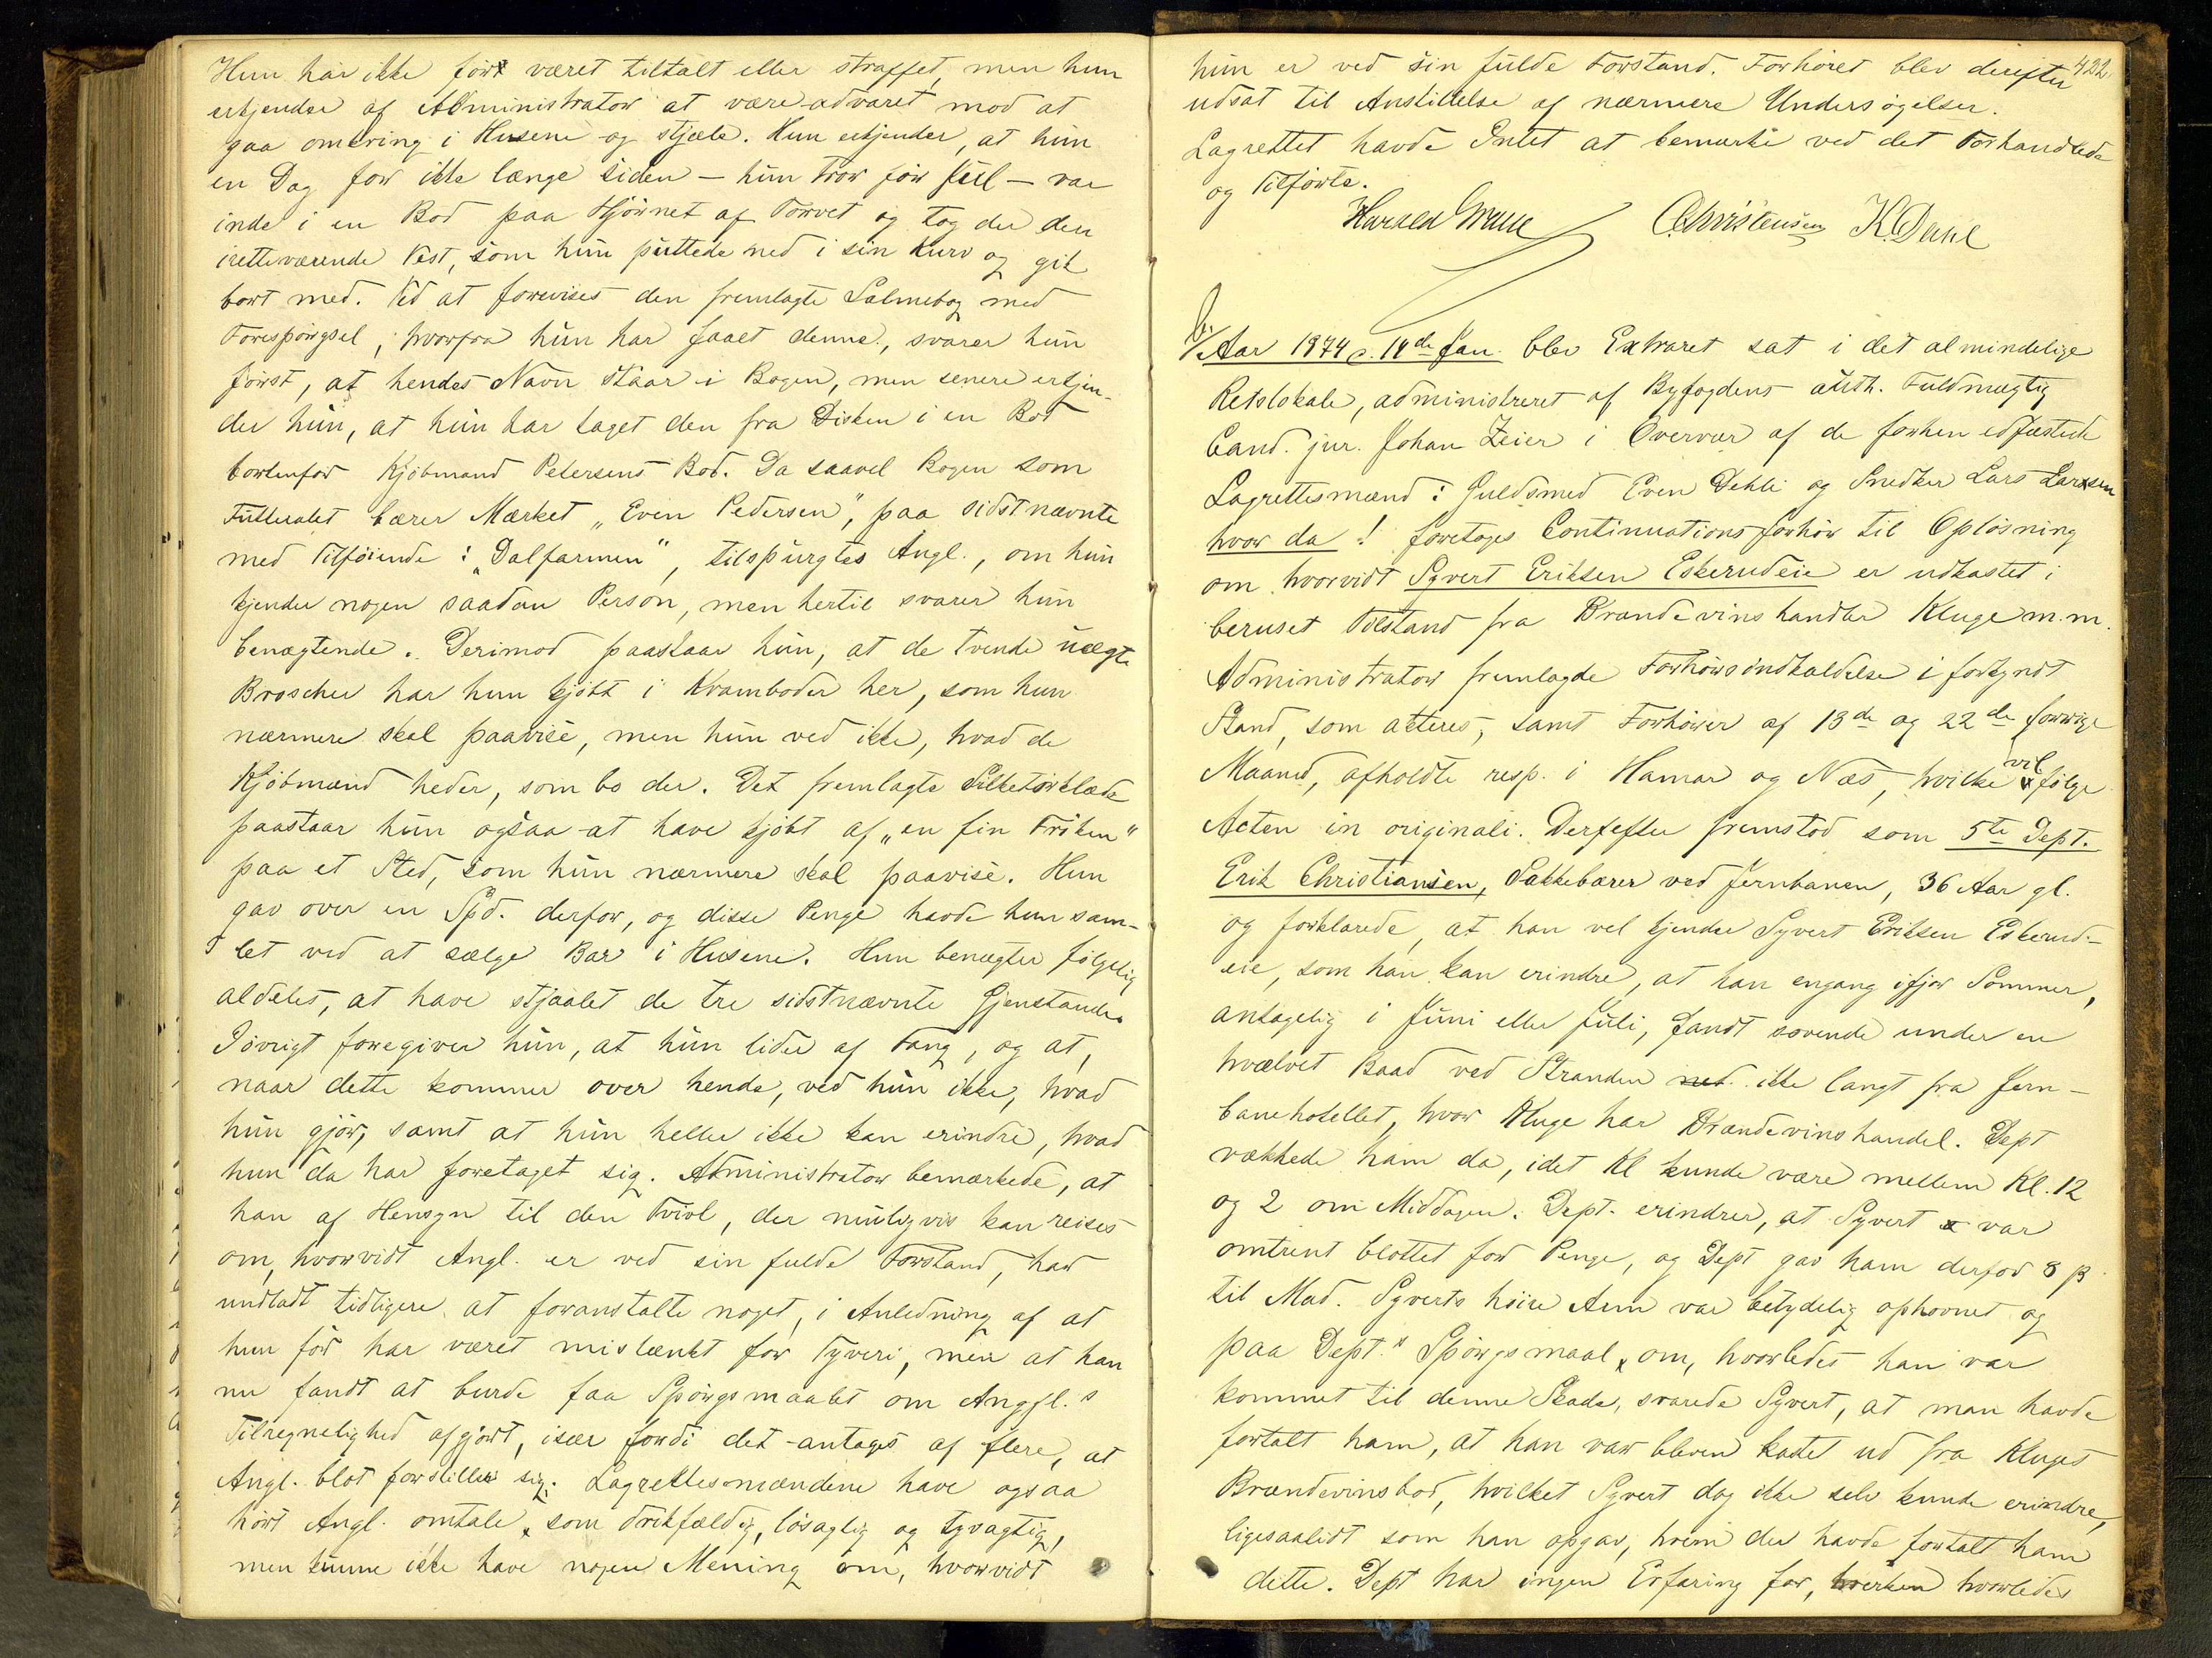 Hun har ikke før været tiltalt eller straffet, men hun
erkjender af Administrator at være advaret mod at
gaa omkring i Husene og stjæle. Hun erkjender, at hun
en Dag for ikke længe siden – hun tror før Jul – var
inde i en Bod paa Hjørnet af Torvet og tog der den
iretteværende Vest, som hun puttede ned i sin Kurv og gik
bort med. Ved at forevises den fremlagte Salmebog med
Forespørgsel, hvorfra hun har faaet denne, svarer hun
først, at hendes Navn staar i Bogen, men senere erkjen-
der hun, at hun har taget den fra Disken i en Bod
bortenfor Kjøbmand Petersens Bod. Da saavel Bogen som
Futteralet bærer Mærket „Even Pedersen", paa sidstnævnte
med Tilføiende: „Dalfarmen", tilspurgtes Angl., om hun
kjender nogen saadan Person, men hertil svarer hun
benægtende. Derimod paastaar hun, at de tvende uægte
Broscher har hun kjøbt i Kramboder her, som hun
nærmere skal paavise, men hun ved ikke, hvad de
Kjøbmænd heder, som bo der. Det fremlagte Silketørklæde
paastaar hun ogsaa at have kjøbt af „en fin Frøken"
paa et Sted, som hun nærmere skal paavise. Hun
gav over en Spd. derfor, og disse Penge havde hun sam-
let ved at sælge Bær i Husene. Hun benægter følgelig
aldeles, at have stjaalet de tre sidstnævnte Gjenstande.
Iøvrigt foregiver hun, at hun lider af Tang, og at,
naar dette kommer over hende, ved hun ikke, hvad
hun gjør, samt at hun heller ikke kan erindre, hvad
hun da har foretaget sig. Administrator bemærkede, at
han af Hensyn til den Tvivl, der muligvis kan reises
om, hvorvidt Angl. er ved sin fulde Forstand, har
undladt tidligere at foranstalte noget, i Anledning af at
hun før har været mistænkt for Tyveri, men at han
nu fandt at burde faa Spørgsmaalet om Angl.s
Tilregnelighed afgjort, især fordi det antages af flere, at
Angl. blot forstiller sig. Lagrettesmændene have ogsaa
hørt Angl. omtale som drikfældig, løsagtig og tyvagtig,
men kunne ikke have nogen Mening om, hvorvidt
422.
hun er ved sin fulde Forstand. Forhøret blev derefter
udsat til Anstillelse af nærmere Undersøgelser.
Lagrettet havde Intet at bemærke ved det Forhandlede
og Tilførte.
Christensen K. Dahl
Aar 1874 d. 14de Jan. blev Extraret sat i det almindelige
Retslokale, administreret af Byfogdens auth. Fuldmægtig
Cand. jur. Johan Zeier i Overvær af de forhen edfæstede
Lagrettesmænd: Guldsmed Even Dehli og Snedker Lars Larsen
hvor da! foretoges Continuationsforhør til Oplysning
om hvorvidt Syvert Eriksen Eskerudeie er udkastet i
beruset Tilstand fra Brændevinshandler Kluge m.m.
Administrator fremlagde Forhørsindkaldelse i forkyndt
Stand, som acteres, samt Forhører af 13de og 22de forrige
Maaned, afholdte resp. i Hamar og Næs, hvilke vil følge
Acten in originali. Derefter fremstod som 5te Dept.
Erik Christiansen, Pakkebærer ved Jernbanen, 36 Aar gl.
og forklarede, at han vel kjender Syvert Eriksen Eskerud-
eie, som han kan erindre, at han engang ifjor Sommer,
antagelig i Juni eller Juli, fandt sovende under en
hvælvet Baad ved Stranden ned ikke langt fra Jern-
banehotellet, hvor Kluge har Brændevinshandel. Dept
vækkede ham da, idet Kl kunde være mellem Kl. 12
og 2 om Middagen. Dept. erindrer, at Syvert var
omtrent blottet for Penge, og Dept gav ham derfor 8 ß
til Mad. Syverts høire Arm var betydelig ophovnet og
paa Dept.s Spørgsmaal om, hvorledes han var
kommet til denne Skade, svarede Syvert, at man havde
fortalt ham, at han var bleven kastet ud fra Kluges
Brændevinsbod, hvilket Syvert dog ikke selv kunde erindre,
ligesaalidt som han opgav, hvem der havde fortalt ham
dette. Dept har ingen Erfaring for, hverken hvorledes